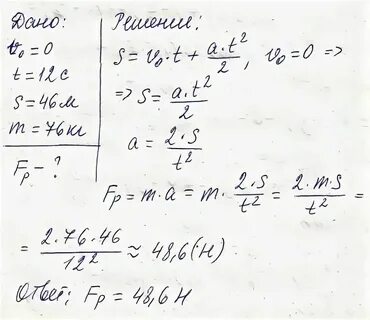 Дано:
v₀ = 0
t = 12 с
S = 46 м
m = 76 кг
Fр - ?
Решение:
S = v₀·t + a·t²/2, v₀ = 0 =>
=> S = a·t²/2
a = 2·S/t²
Fр = m·a = m·2·S/t² = 2·m·S/t² =
= 2·76·46/12² ≈ 48,6 (Н)
Ответ: Fр = 48,6 Н